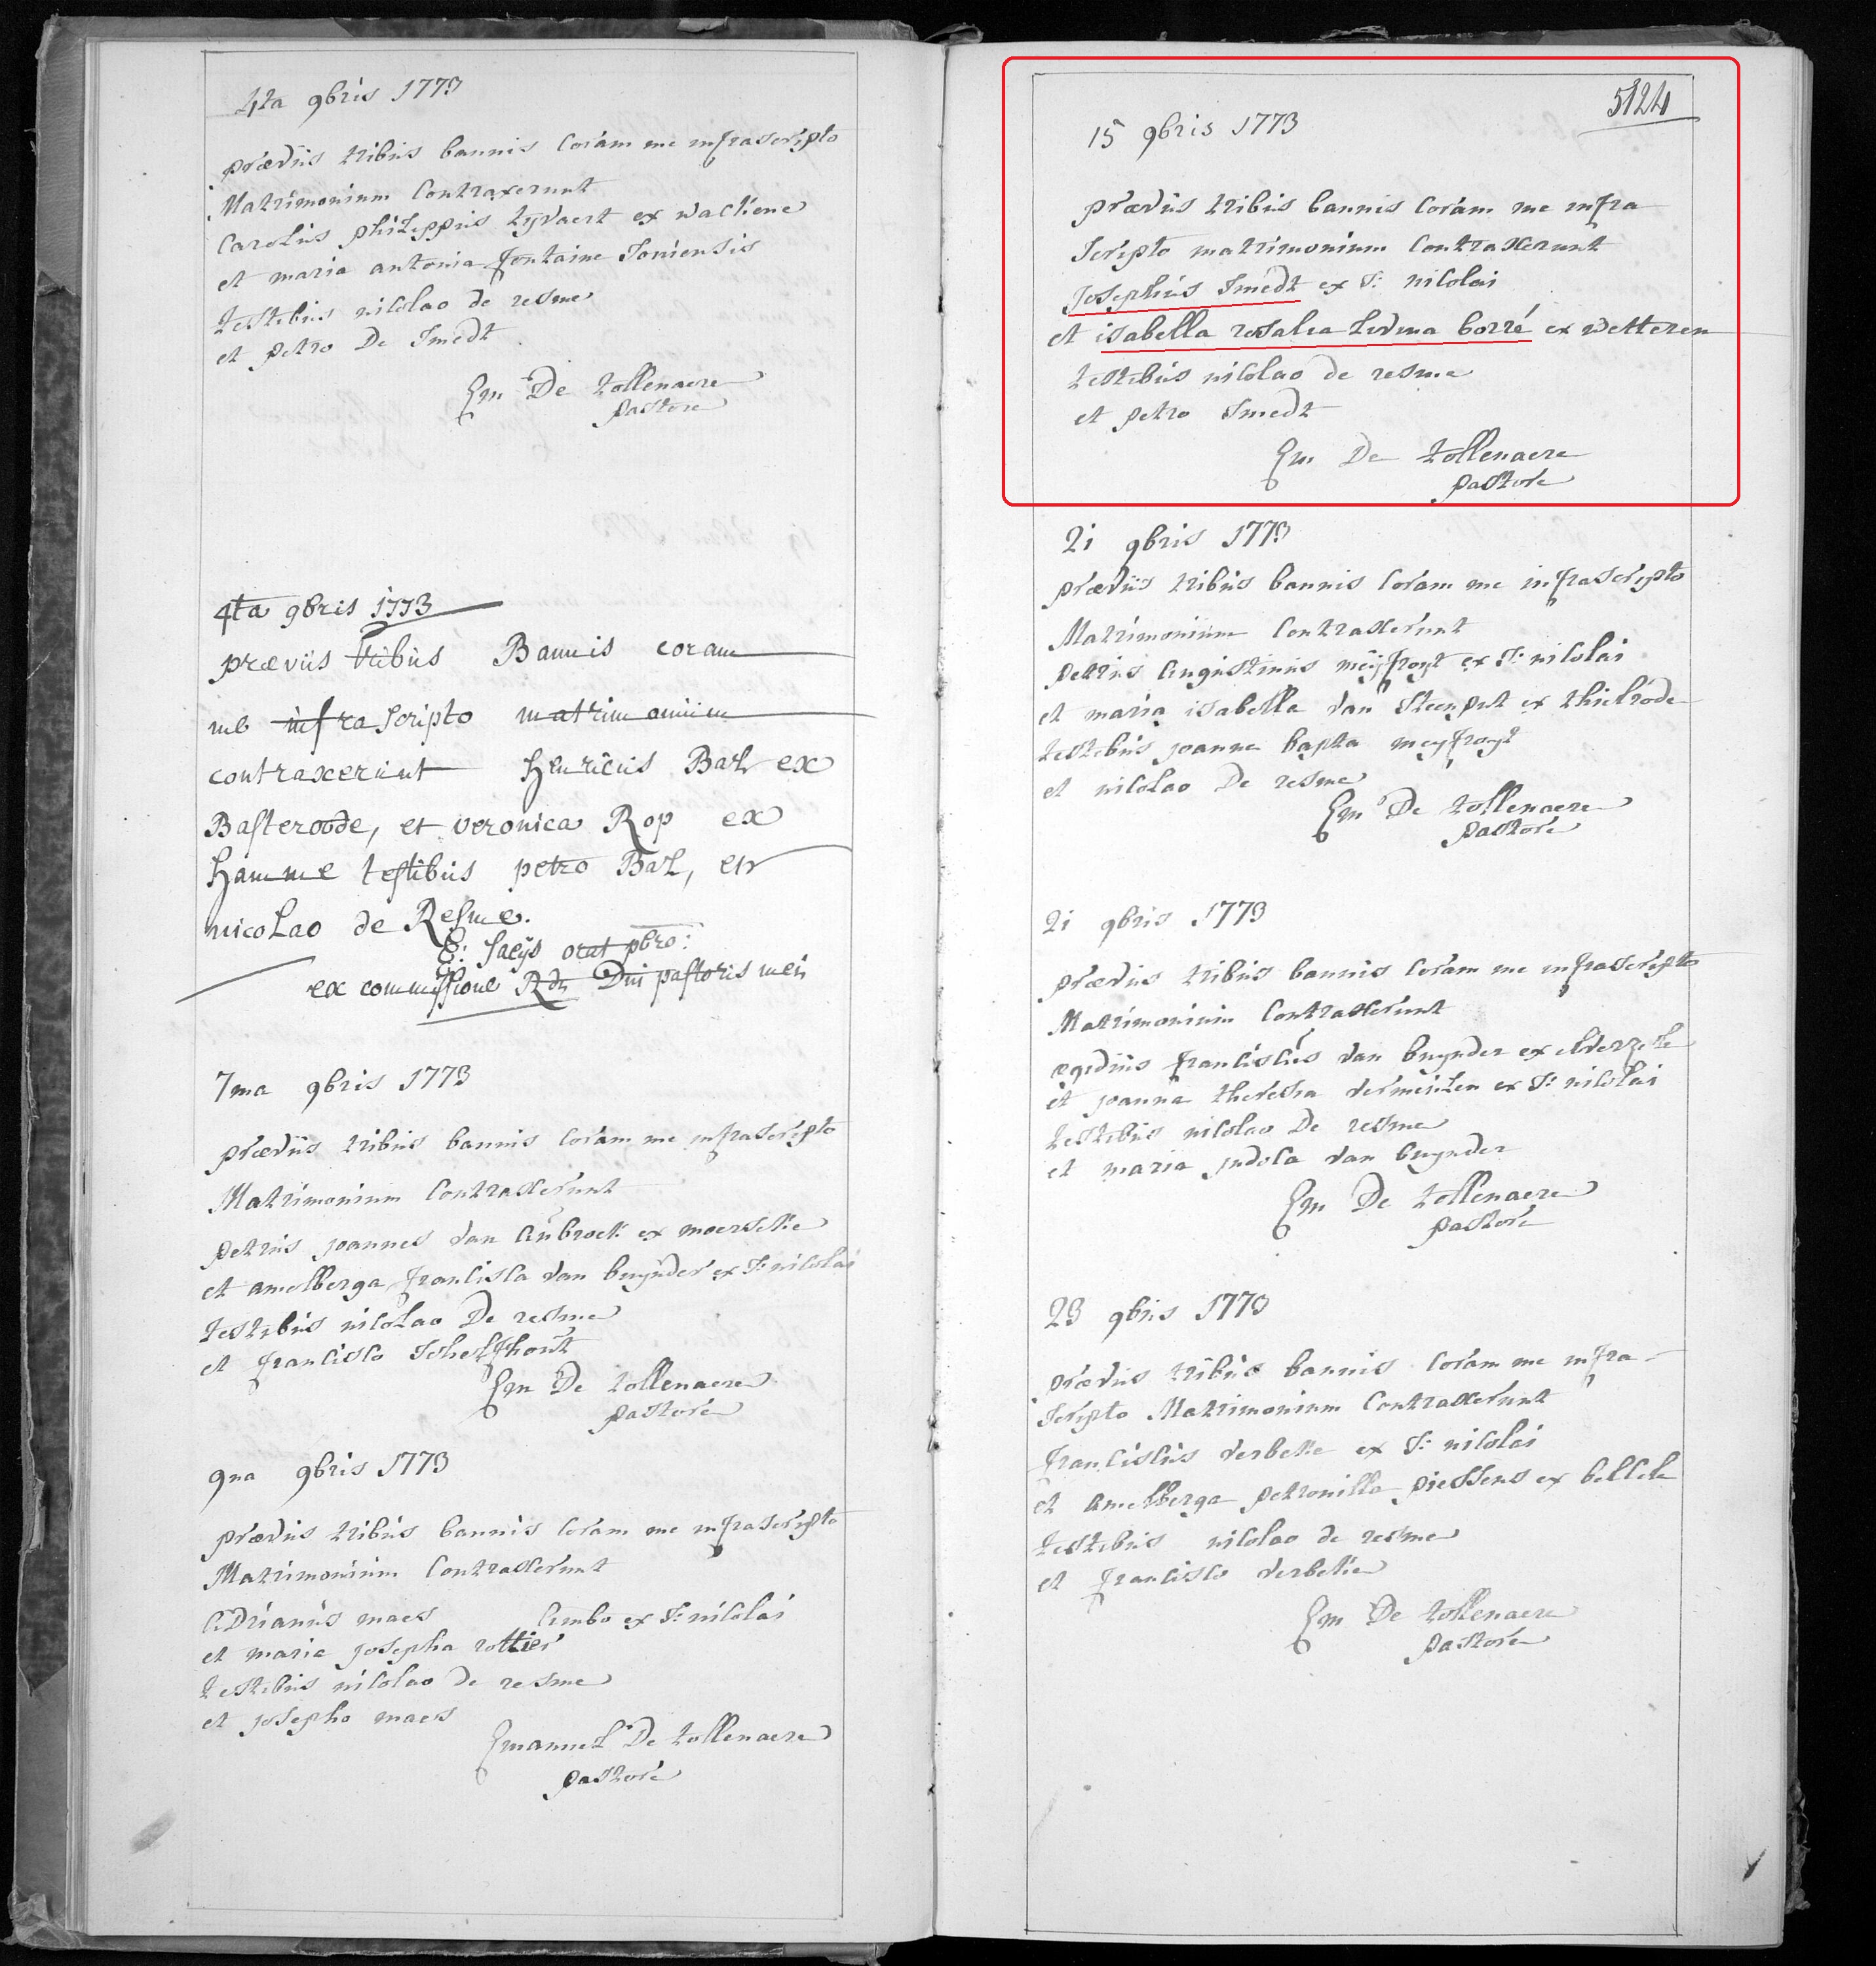 4ta 9bris 1773
præviis tribus bannis Coram me infrascripto
Matrimonium Contraxerunt
Carolus philippus
et maria antonia fontaine
testibus nicolao de resme
et petro De Smedt
Em De tollenaere
pastore
4ta 9bris 1773
præviis tribus Bannis coram
me infra scripto matrimonium
contraxerunt Henricus Bal ex
Basteroode, et veronica Rop ex
Hamme testibus petro Bal, et
nicolao de Resme.
E: Saeÿs orat pbro:
ex commissione Rdi Dni pastoris mei
7ma 9bris 1773
præviis tribus bannis Coram me infrascripto
Matrimonium Contraxerunt
petrus joannes van ex moerbeke
et amelberga francisca van buÿnder ex St nicolai
testibus nicolao De resme
et francisco Schelfhout
Em De tollenaere
pastore
9na 9bris 1773
præviis tribus bannis Coram me infrascripto
Matrimonium Contraxerunt
Adrianus maes Ambo ex St: nicolai
et maria josepha rottier
testibus nicolao de resme
et josepho maes
Emanuel De tollenaere
pastore
5124
15 9bris 1773
præviis tribus bannis Coram me infra
Scripto matrimonium Contraxerunt
Josephus Smedt ex St: nicolai
et isabella rosalia borré ex wetteren
testibus nicolao de resme
et petro Smedt
Em De tollenaere
pastore
2i 9bris 1773
præviis tribus bannis Coram me infrascripto
Matrimonium Contraxerunt
petrus Augustinus meÿfroyt ex St: nicolai
et maria isabella van Steenput ex thielrode
testibus joanne bapta meyfroyt
et nicolao De resme
Em De tollenaere
pastore
2i 9bris 1773
præviis tribus bannis Coram me infrascripto
Matrimonium Contraxerunt
egidius franciscus van buynder ex elverzele
et joanna theresia vermeulen ex St: nicolai
testibus nicolao De resme
et maria judoca van buynder
Em De tollenaere
pastore
23 9bris 1773
præviis tribus bannis Coram me infra
Scripto Matrimonium Contraxerunt
franciscus verbeke ex St: nicolai
et Amelberga petronilla piessens ex bellele
testibus nicolao de resme
et francisco verbeke
Em De tollenaere
pastore